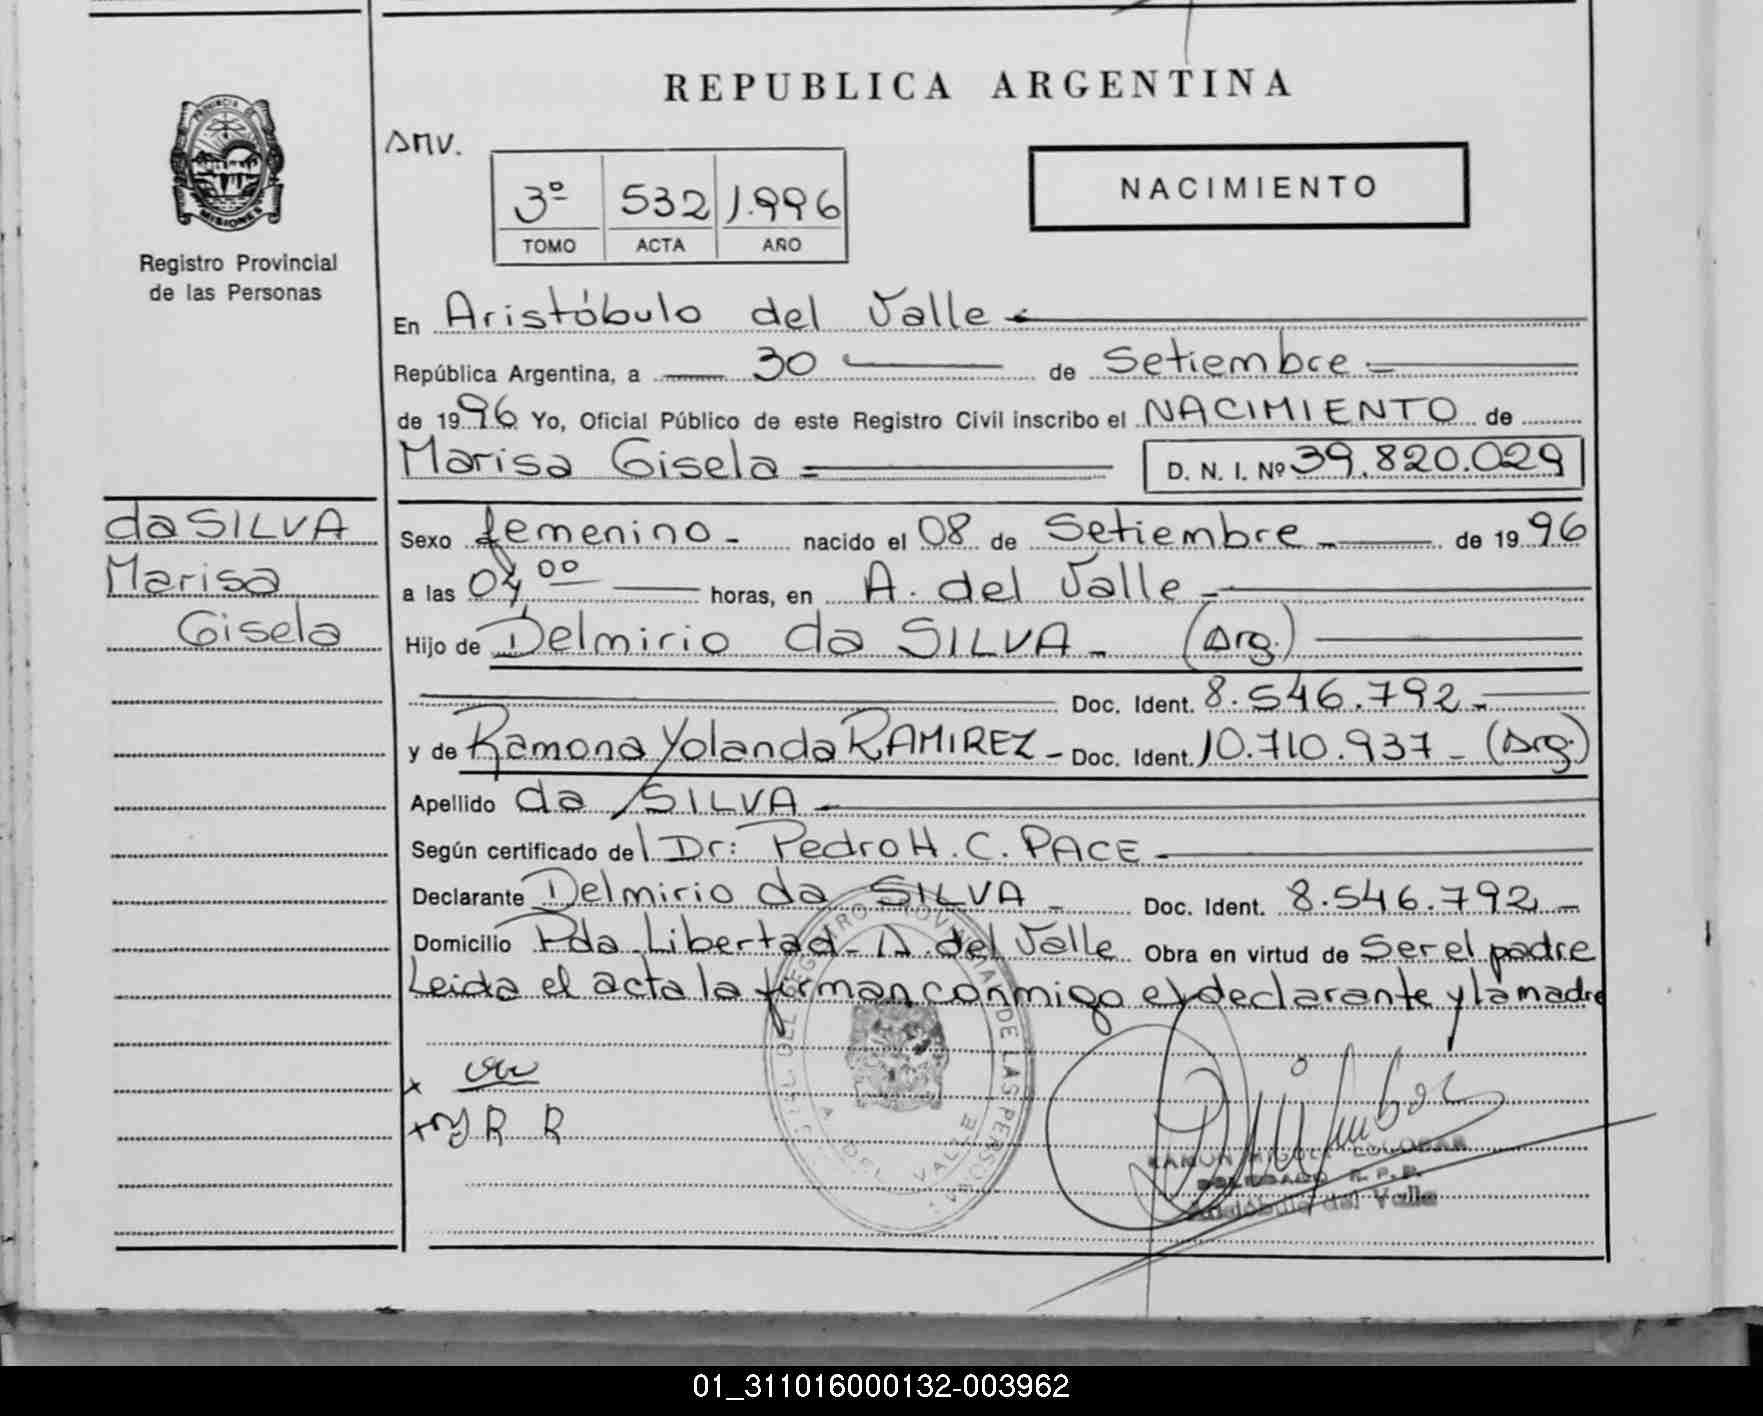 REPUBLICA ARGENTINA
PROVINCIA DE
MISIONES
Registro Provincial
de las Personas
3º 532 1.996
TOMO ACTA AÑO
NACIMIENTO
En Aristóbulo del Valle
República Argentina, a 30 de Setiembre
de 1996 Yo, Oficial Público de este Registro Civil inscribo el NACIMIENTO de
Marisa Gisela D. N. I. Nº 39.820.029
da SILVA
Marisa
Gisela
Sexo femenino - nacido el 08 de Setiembre - de 1996
a las 04 00 horas, en A. del Valle -
Hijo de Delmirio da SILVA - (Arg.)
Doc. Ident. 8.546.792 -
y de Ramona Yolanda RAMIREZ - Doc. Ident. 10.710.937 - (Arg.)
Apellido da SILVA -
Según certificado del Dr: Pedro H. C. PACE -
Declarante Delmirio da SILVA - Doc. Ident. 8.546.792 -
Domicilio Pda Libertad - A. del Valle Obra en virtud de Ser el padre
Leida el acta la firman conmigo el declarante y la madre
R R
A. DEL VALLE
RAMON MIGUEL ESCOBAR
DELEGADO R.P.P.
Aristóbulo del Valle
01_311016000132-003962